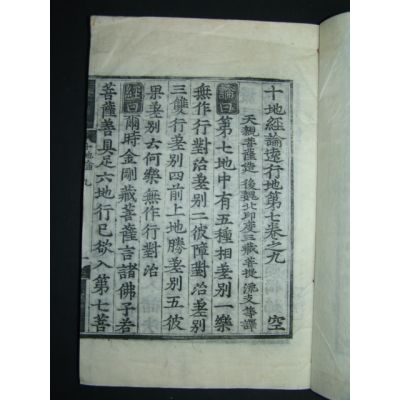 十地經論遠行地第七卷之九 空
天親菩薩造 後魏北印度三藏菩提流支等譯
論曰第七地中有五種相差別一樂
無作行對治差別二彼障對治差別
三雙行差別四前上地勝差別五彼
果差別云何樂無作行對治
經曰爾時金剛藏菩薩言諸佛子若
菩薩善具足六地行已欲入第七菩
十地論 九